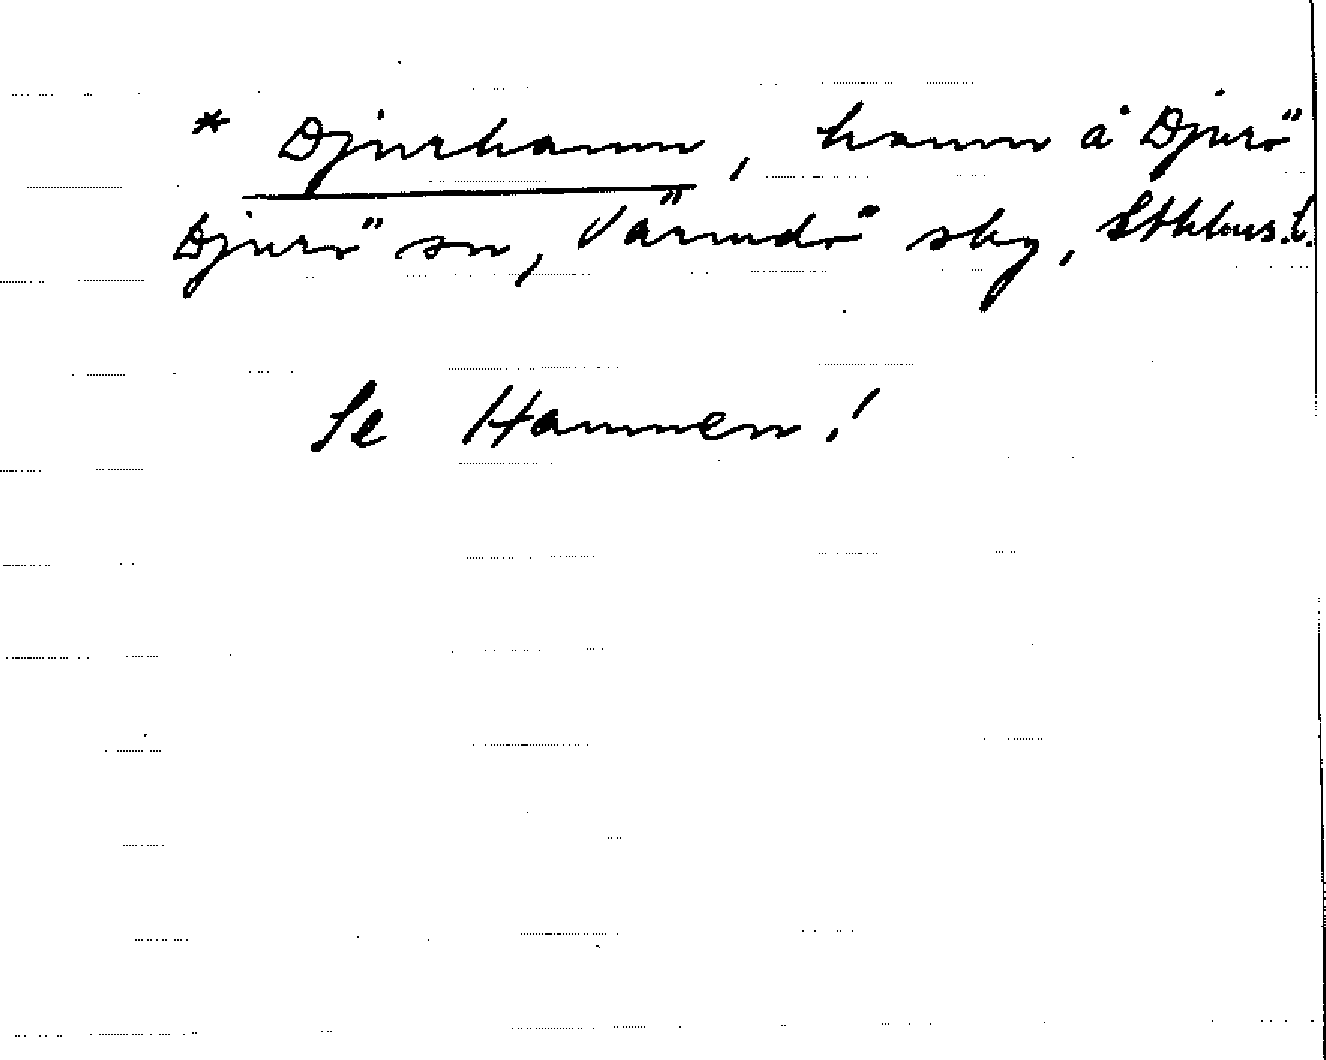 * Djurhamn, hamn å Djurö
Djurö sn, Värmdö sky, Sthlms l.
Se Hamnen!